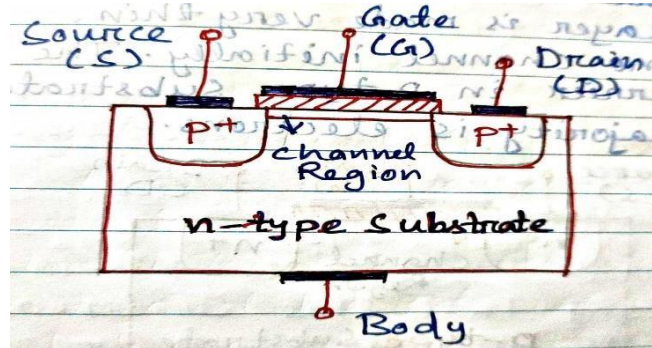 Source
(S)
Gate
(G)
Drain
(D)
p+
p+
channel
Region
n-type Substrate
Body